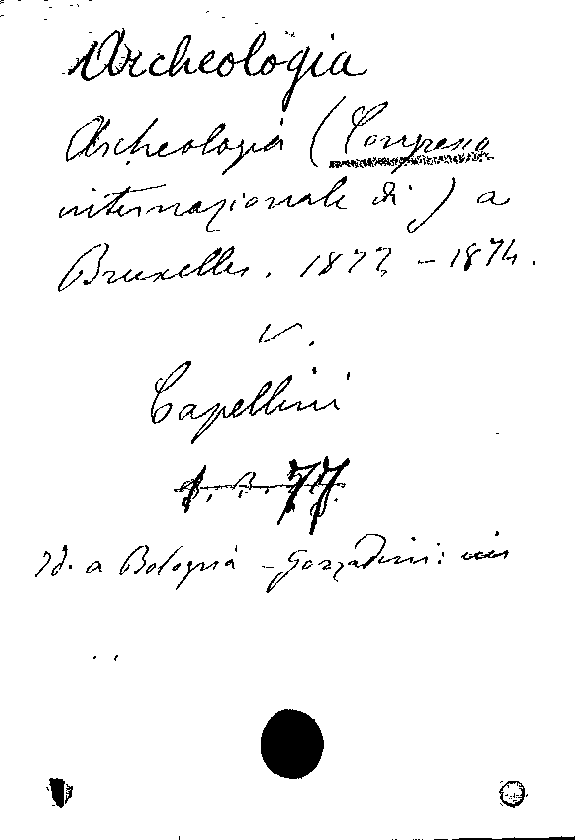 Archeologia
Archeologia (Congresso
internazionale di) a
Bruxelles. 1872 - 1874.
v.
Capellini
77
Id. a Bologna - Gozzadini: